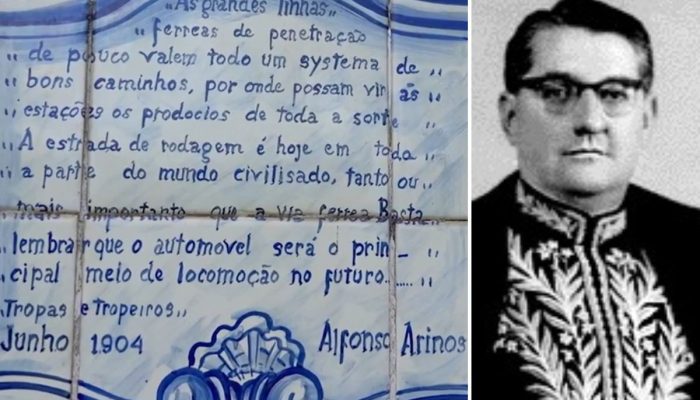 "As grandes linhas„
„ ferreas de penetração
„ de pouco valem todo um systema de „
„ bons caminhos, por onde possam vir ás „
„ estações os prodocios de toda a sorte „
„ A estrada de rodagem é hoje em toda
„ a parte do mundo civilisado, tanto ou „
„ mais importante que a via ferrea Basta
„ lembrar que o automovel será o prin_ „
„ cipal meio de locomoção no futuro...... „
Tropas e Tropeiros„
Junho 1.904 Alfonso Arinos